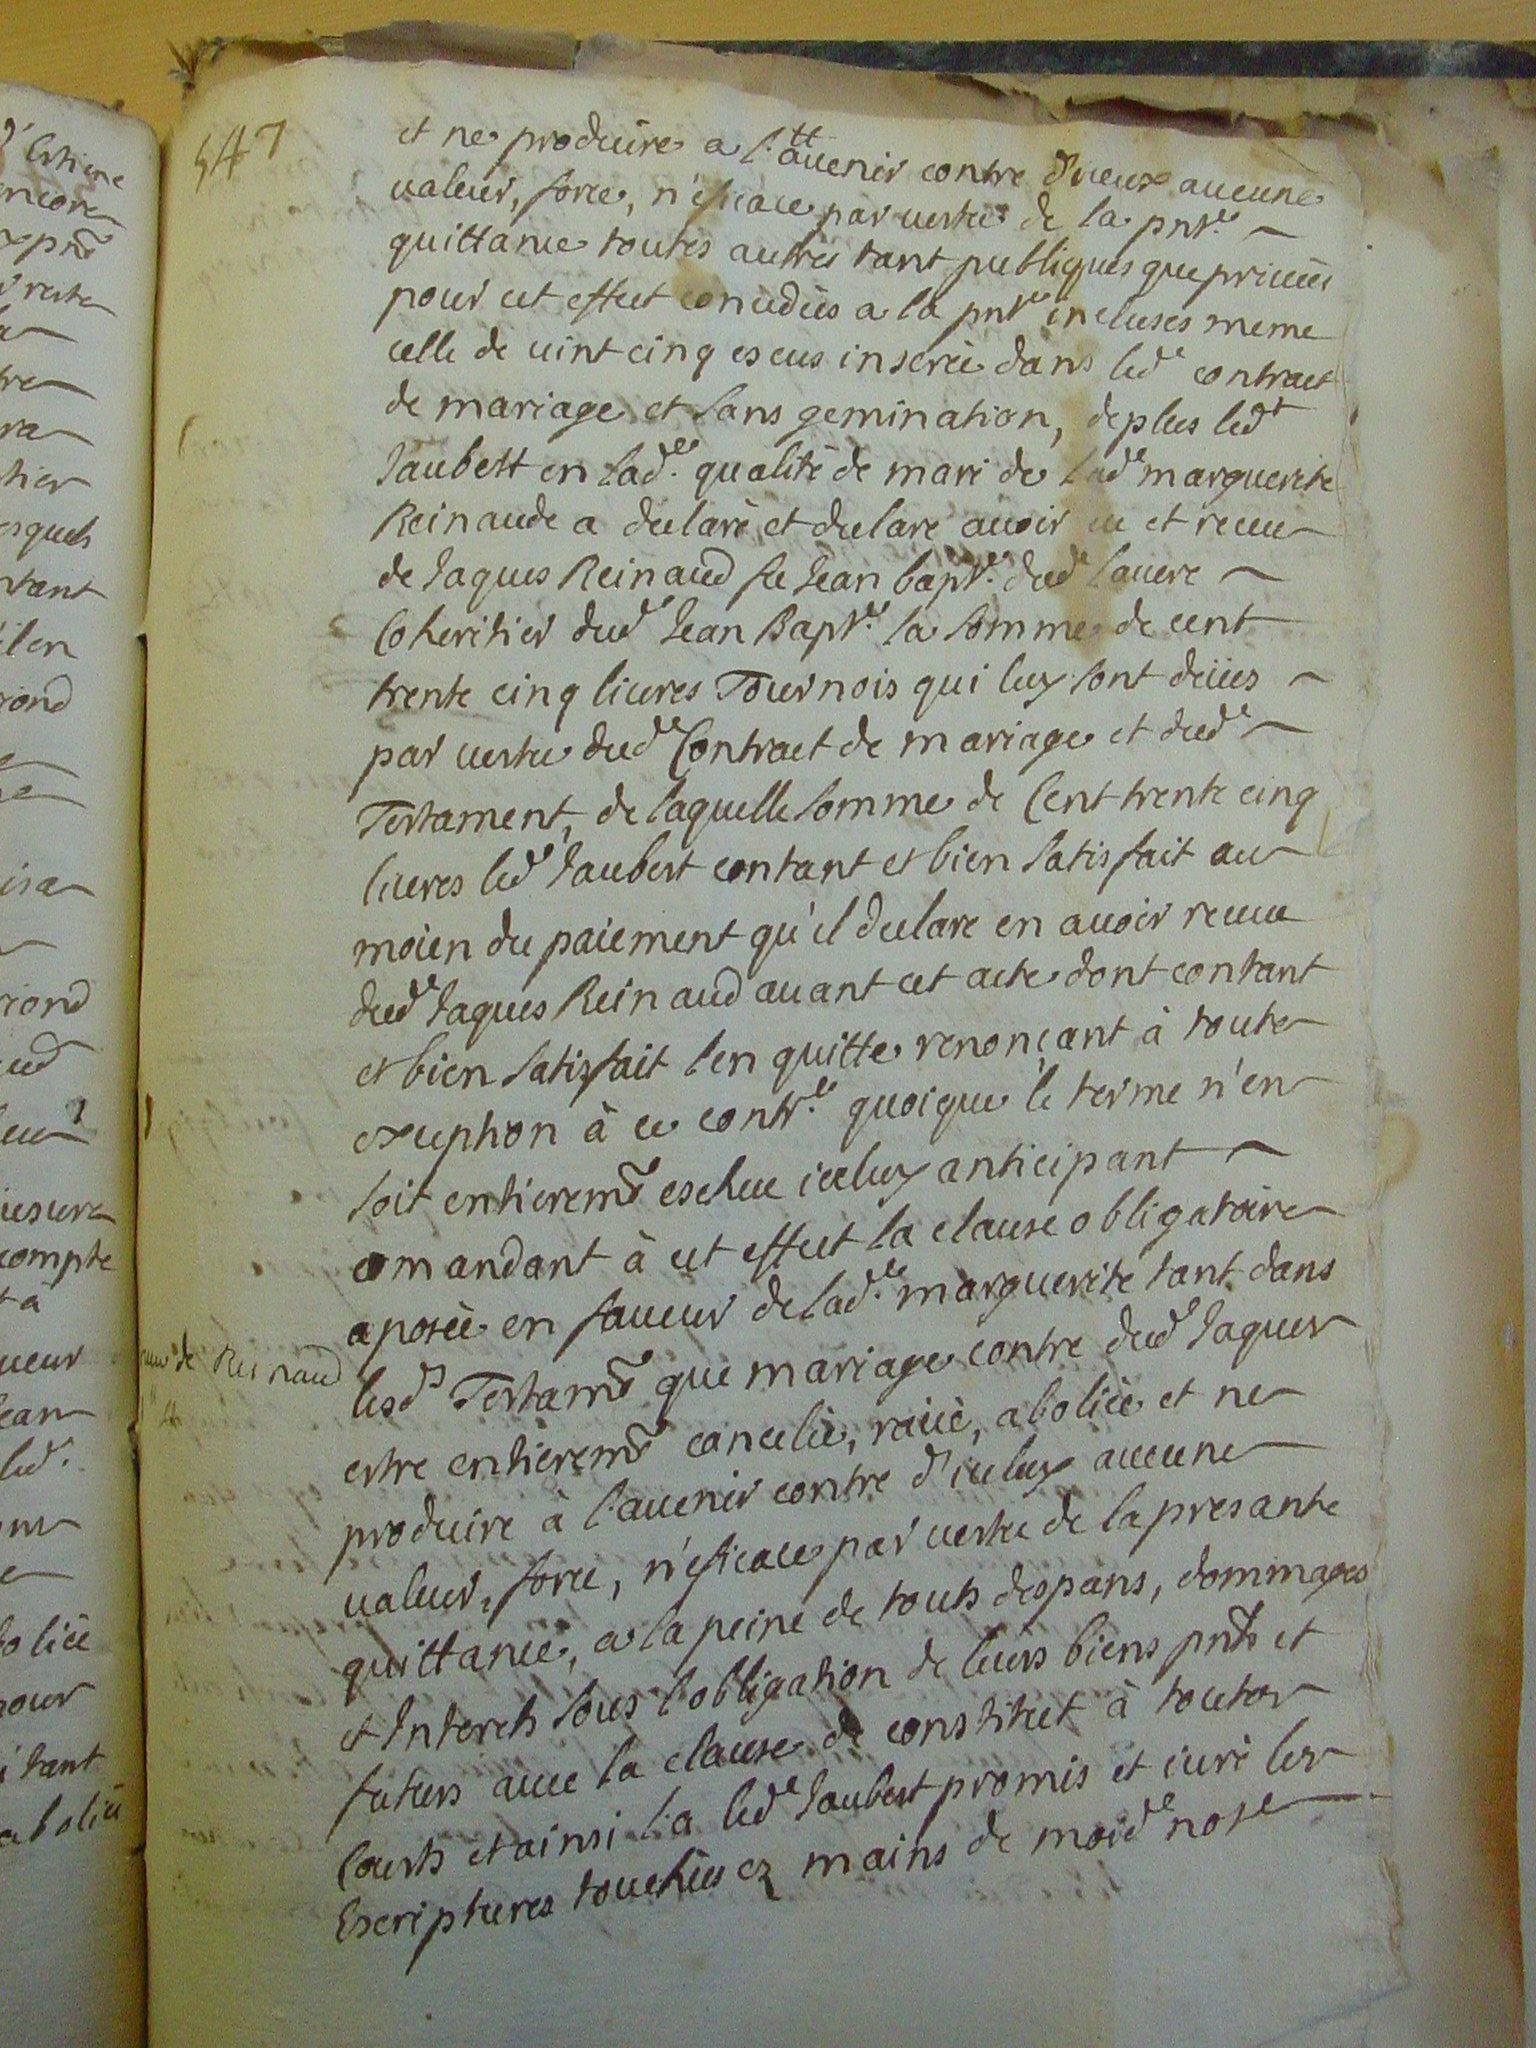 547
et ne produire a l'auenir contre d'iceux aucune
ualeur, force, n'eficace par uertu de la pnte
quittance toutes autres tant publiques que priuées
pour cet effect concedées a la pnte incluses meme
celle de uint cinq escus inserée dans led contract
de mariage et sans gemination, de plus led
Jaubert en lade. qualité de mari de lade marguerite
Reinaude a declaré et declare auoir eu et receu
de Jaques Reinaud fu Jean bapte. dud lauere
Coheritier dud Jean Bapte. la somme de cent
trente cinq liures Tournois qui luy sont deües
par uertu dud Contract de mariage et dud
Testament, de laquelle somme de Cent trente cinq
liures led Jaubert contant et bien satisfait au
moien du paiement qu'il declare en auoir receu
dud Jaques Reinaud auant cet acte dont contant
et bien satisfait l'en quitte renonçant à toute
exception à ce contre. quoique le terme n'en
soit entieremt escheu iceluy anticipant
comandant à cet effect la clause obligatoire
aposée en faueur de lade. marguerite tant dans
lesd Testamt que mariage contre dud Jaques
de Reinaud
estre entieremt cancelée, raiiée, abolie et ne
produire à l'auenir contre d'iceluy aucune
ualeur, force, n'eficace par uertu de la presante
quittance, a la peine de touts despans, dommages
et Interets sous l'obligation de leurs biens pnts et
futurs auec la clause de constitut à toutes
Courts et ainsi l'a led Jaubert promis et iuré les
Escriptures touchées ez mains de moid nore